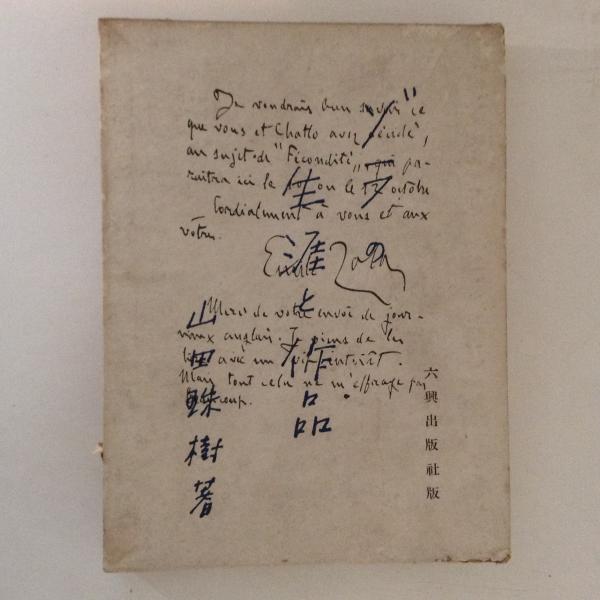 Je voudrais bien savoir ce
que vous et Chatto avez décidé,
au sujet de "Fécondité", qui pa-
raîtra ici le ou le 12 octobre
Cordialement à vous et aux
vôtres.
Emile Zola
Merci de votre envoi de jour-
naux anglais. Je viens de les
lire avec un vif intérêt.
Mais tout cela ne m'effraye pas
beaucoup.
ゾラの
生涯と作品
山田珠樹著
六興出版社版